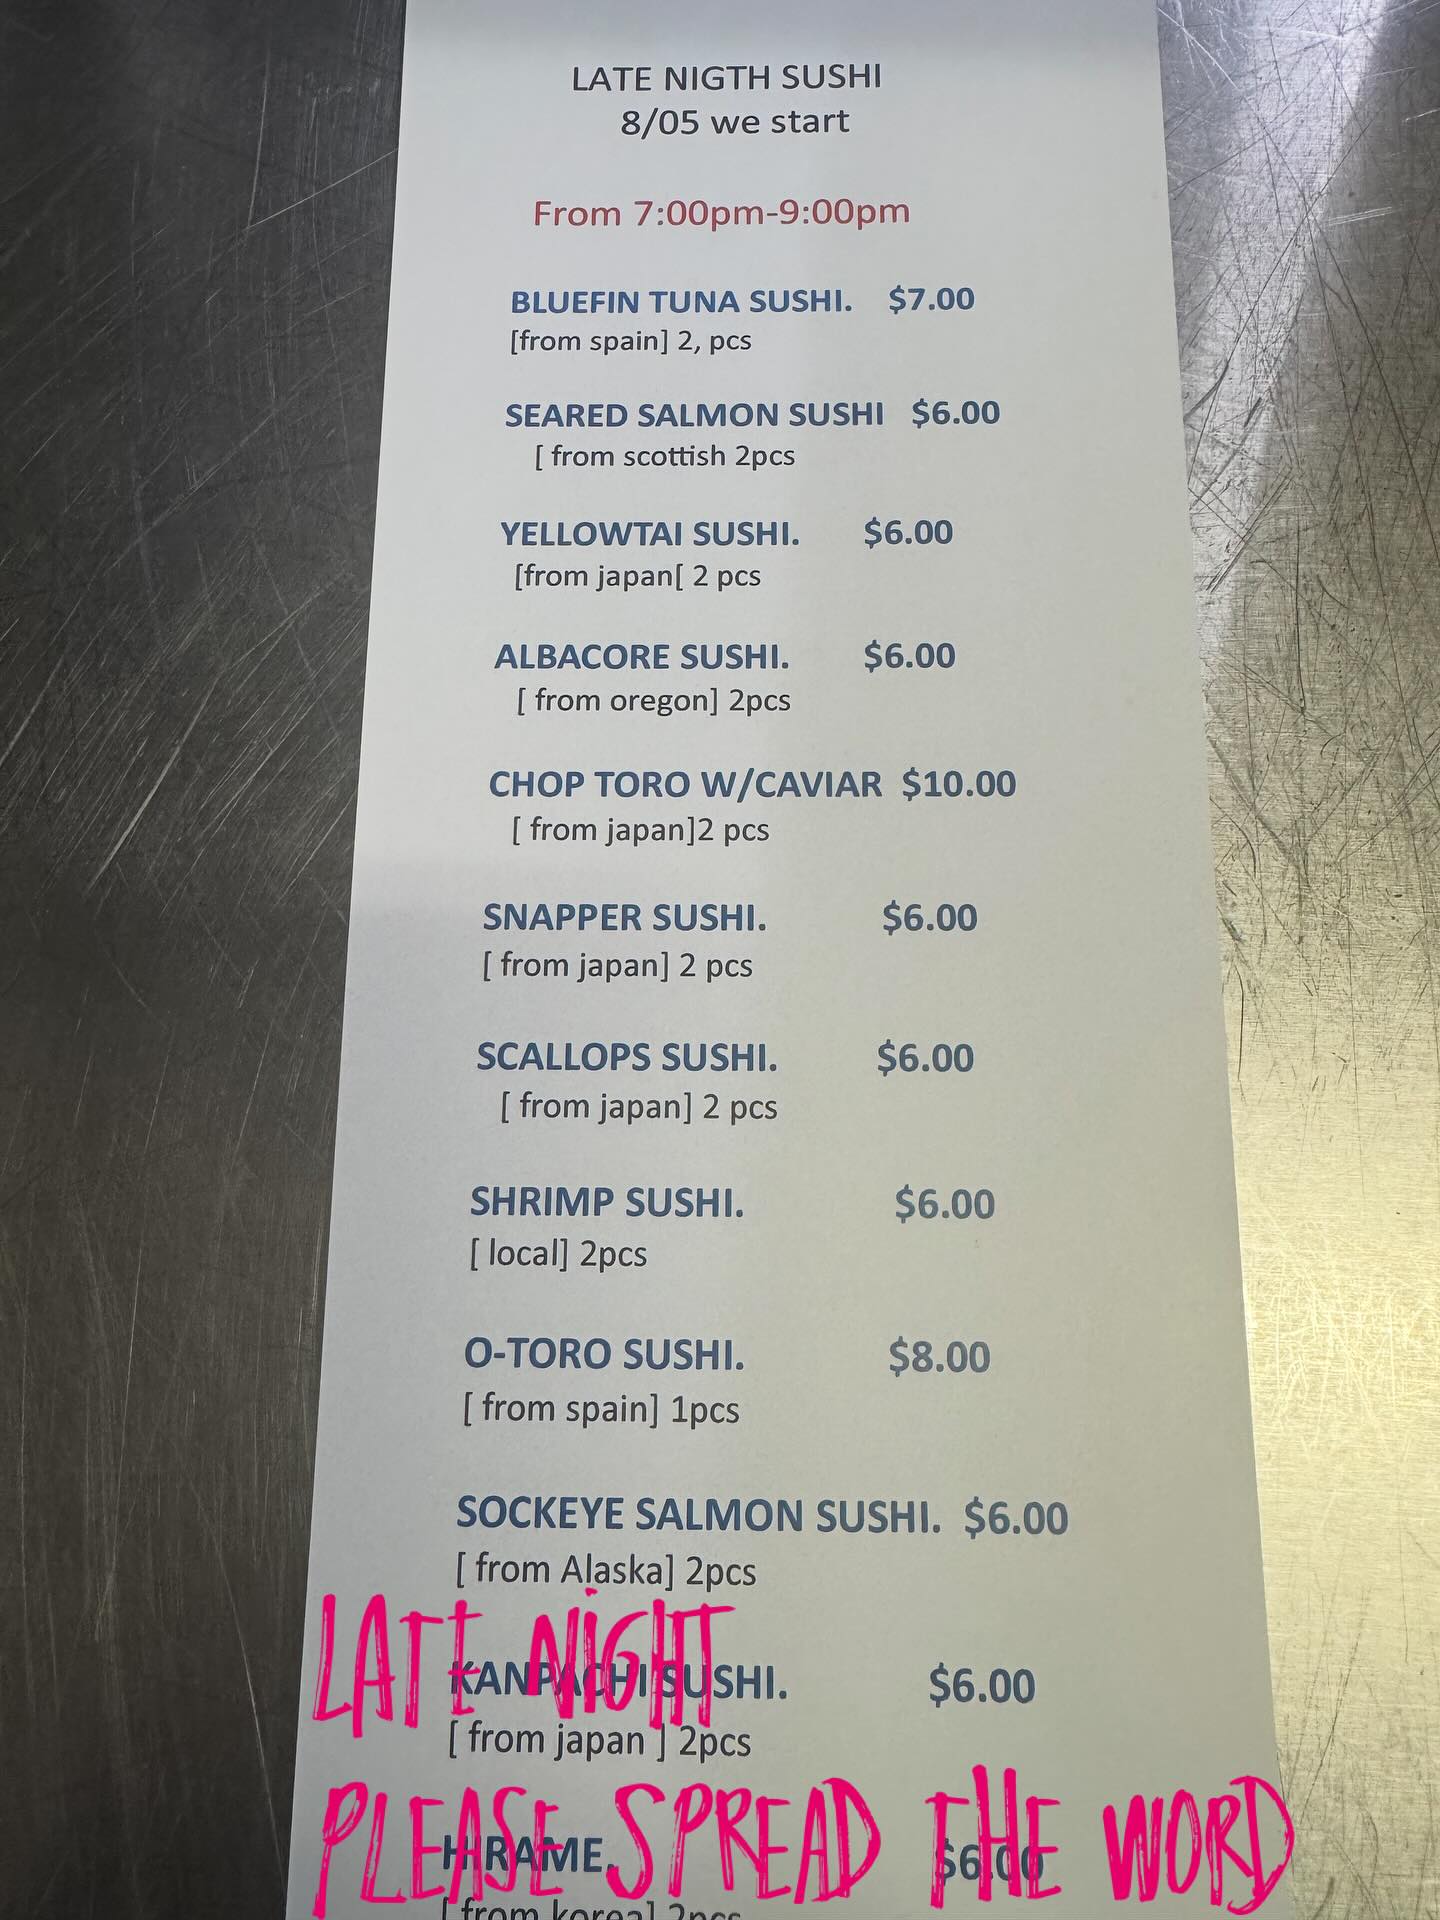 LATE NIGTH SUSHI
8/05 we start
From 7:00pm-9:00pm
BLUEFIN TUNA SUSHI. $7.00
[from spain] 2, pcs
SEARED SALMON SUSHI $6.00
[ from scottish 2pcs
YELLOWTAI SUSHI. $6.00
[from japan[ 2 pcs
ALBACORE SUSHI. $6.00
[ from oregon] 2pcs
CHOP TORO W/CAVIAR $10.00
[ from japan]2 pcs
SNAPPER SUSHI. $6.00
[ from japan] 2 pcs
SCALLOPS SUSHI. $6.00
[ from japan] 2 pcs
SHRIMP SUSHI. $6.00
[ local] 2pcs
O-TORO SUSHI. $8.00
[ from spain] 1pcs
SOCKEYE SALMON SUSHI. $6.00
[ from Alaska] 2pcs
LATE NiGHT
KANPACHI SUSHI. $6.00
[ from japan ] 2pcs
PLEASE SPREAD THE WORD
HIRAME. $6.00
[ from korea] 2pcs